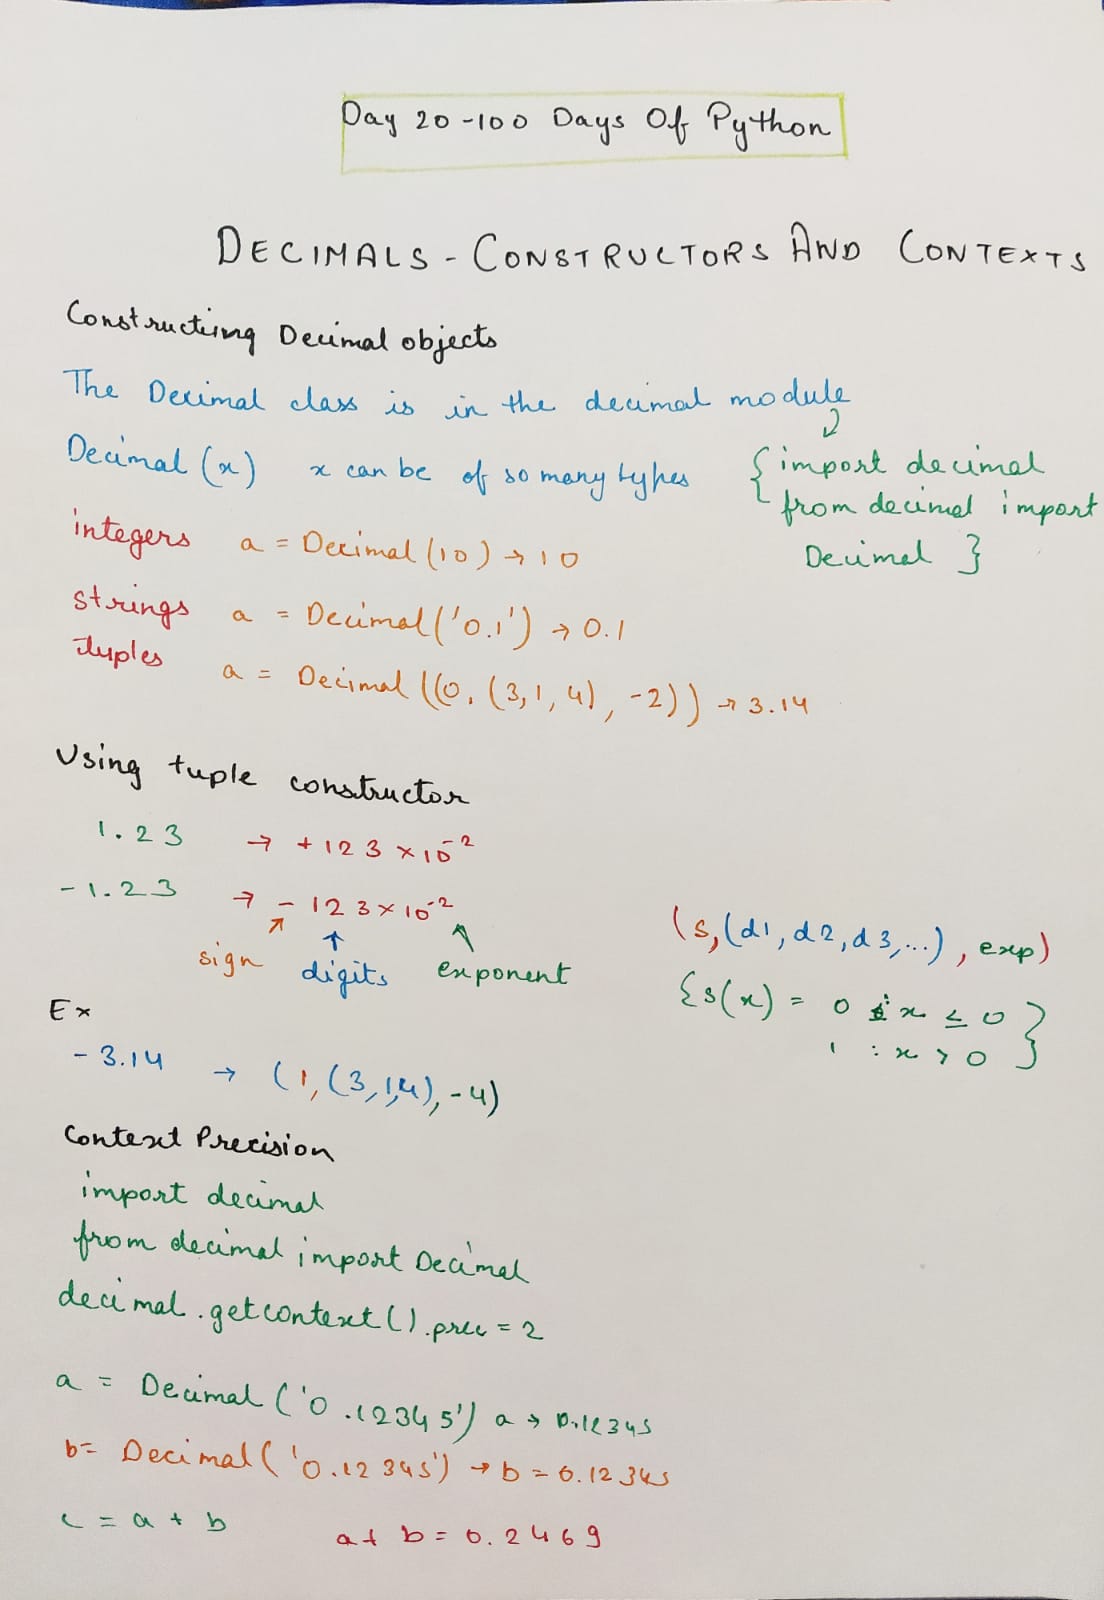 Day 20-100 Days Of Python
DECIMALS - CONSTRUCTORS AND CONTEXTS
Constructing Decimal objects
The Decimal class is in the decimal module
Decimal (x) x can be of so many types
{ import decimal
from decimal import
Decimal }
integers a = Decimal (10) → 10
strings a = Decimal ('0.1') → 0.1
tuples a = Decimal ((0, (3,1,4), -2)) → 3.14
Using tuple constructor
1.23 → +123 × 10⁻²
-1.23 → -123 × 10⁻²
sign digits exponent
(s, (d1, d2, d3, ...), exp)
{s(x) = 0 : x ≤ 0
1 : x > 0 }
Ex
-3.14 → (1, (3,1,4), -4)
Context Precision
import decimal
from decimal import Decimal
decimal.getcontext().prec = 2
a = Decimal ('0.12345') a → 0.12345
b = Decimal ('0.12345') → b = 0.12345
c = a + b a + b = 0.2469